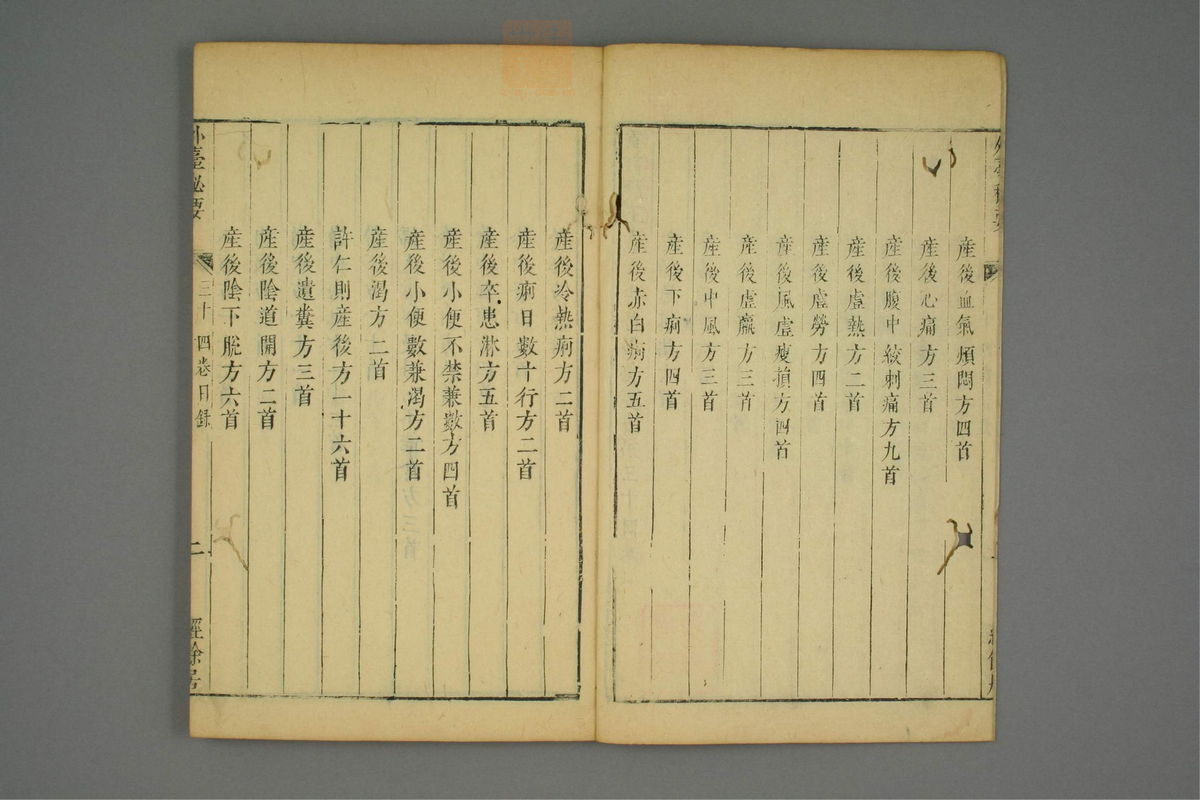 産後血氣煩悶方四首
産後心痛方三首
産後腹中絞刺痛方九首
産後虛熱方二首
産後虛勞方四首
産後風虛瘦損方四首
産後虛羸方三首
産後中風方三首
産後下痢方四首
産後赤白痢方五首
産後冷熱痢方二首
産後痢日數十行方二首
産後卒患淋方五首
産後小便不禁兼數方四首
産後小便數兼渴方二首
産後渴方二首
許仁則産後方一十六首
産後遺糞方三首
産後陰道開方二首
産後陰下脫方六首
外臺秘要
三十四卷目錄
二
經餘居